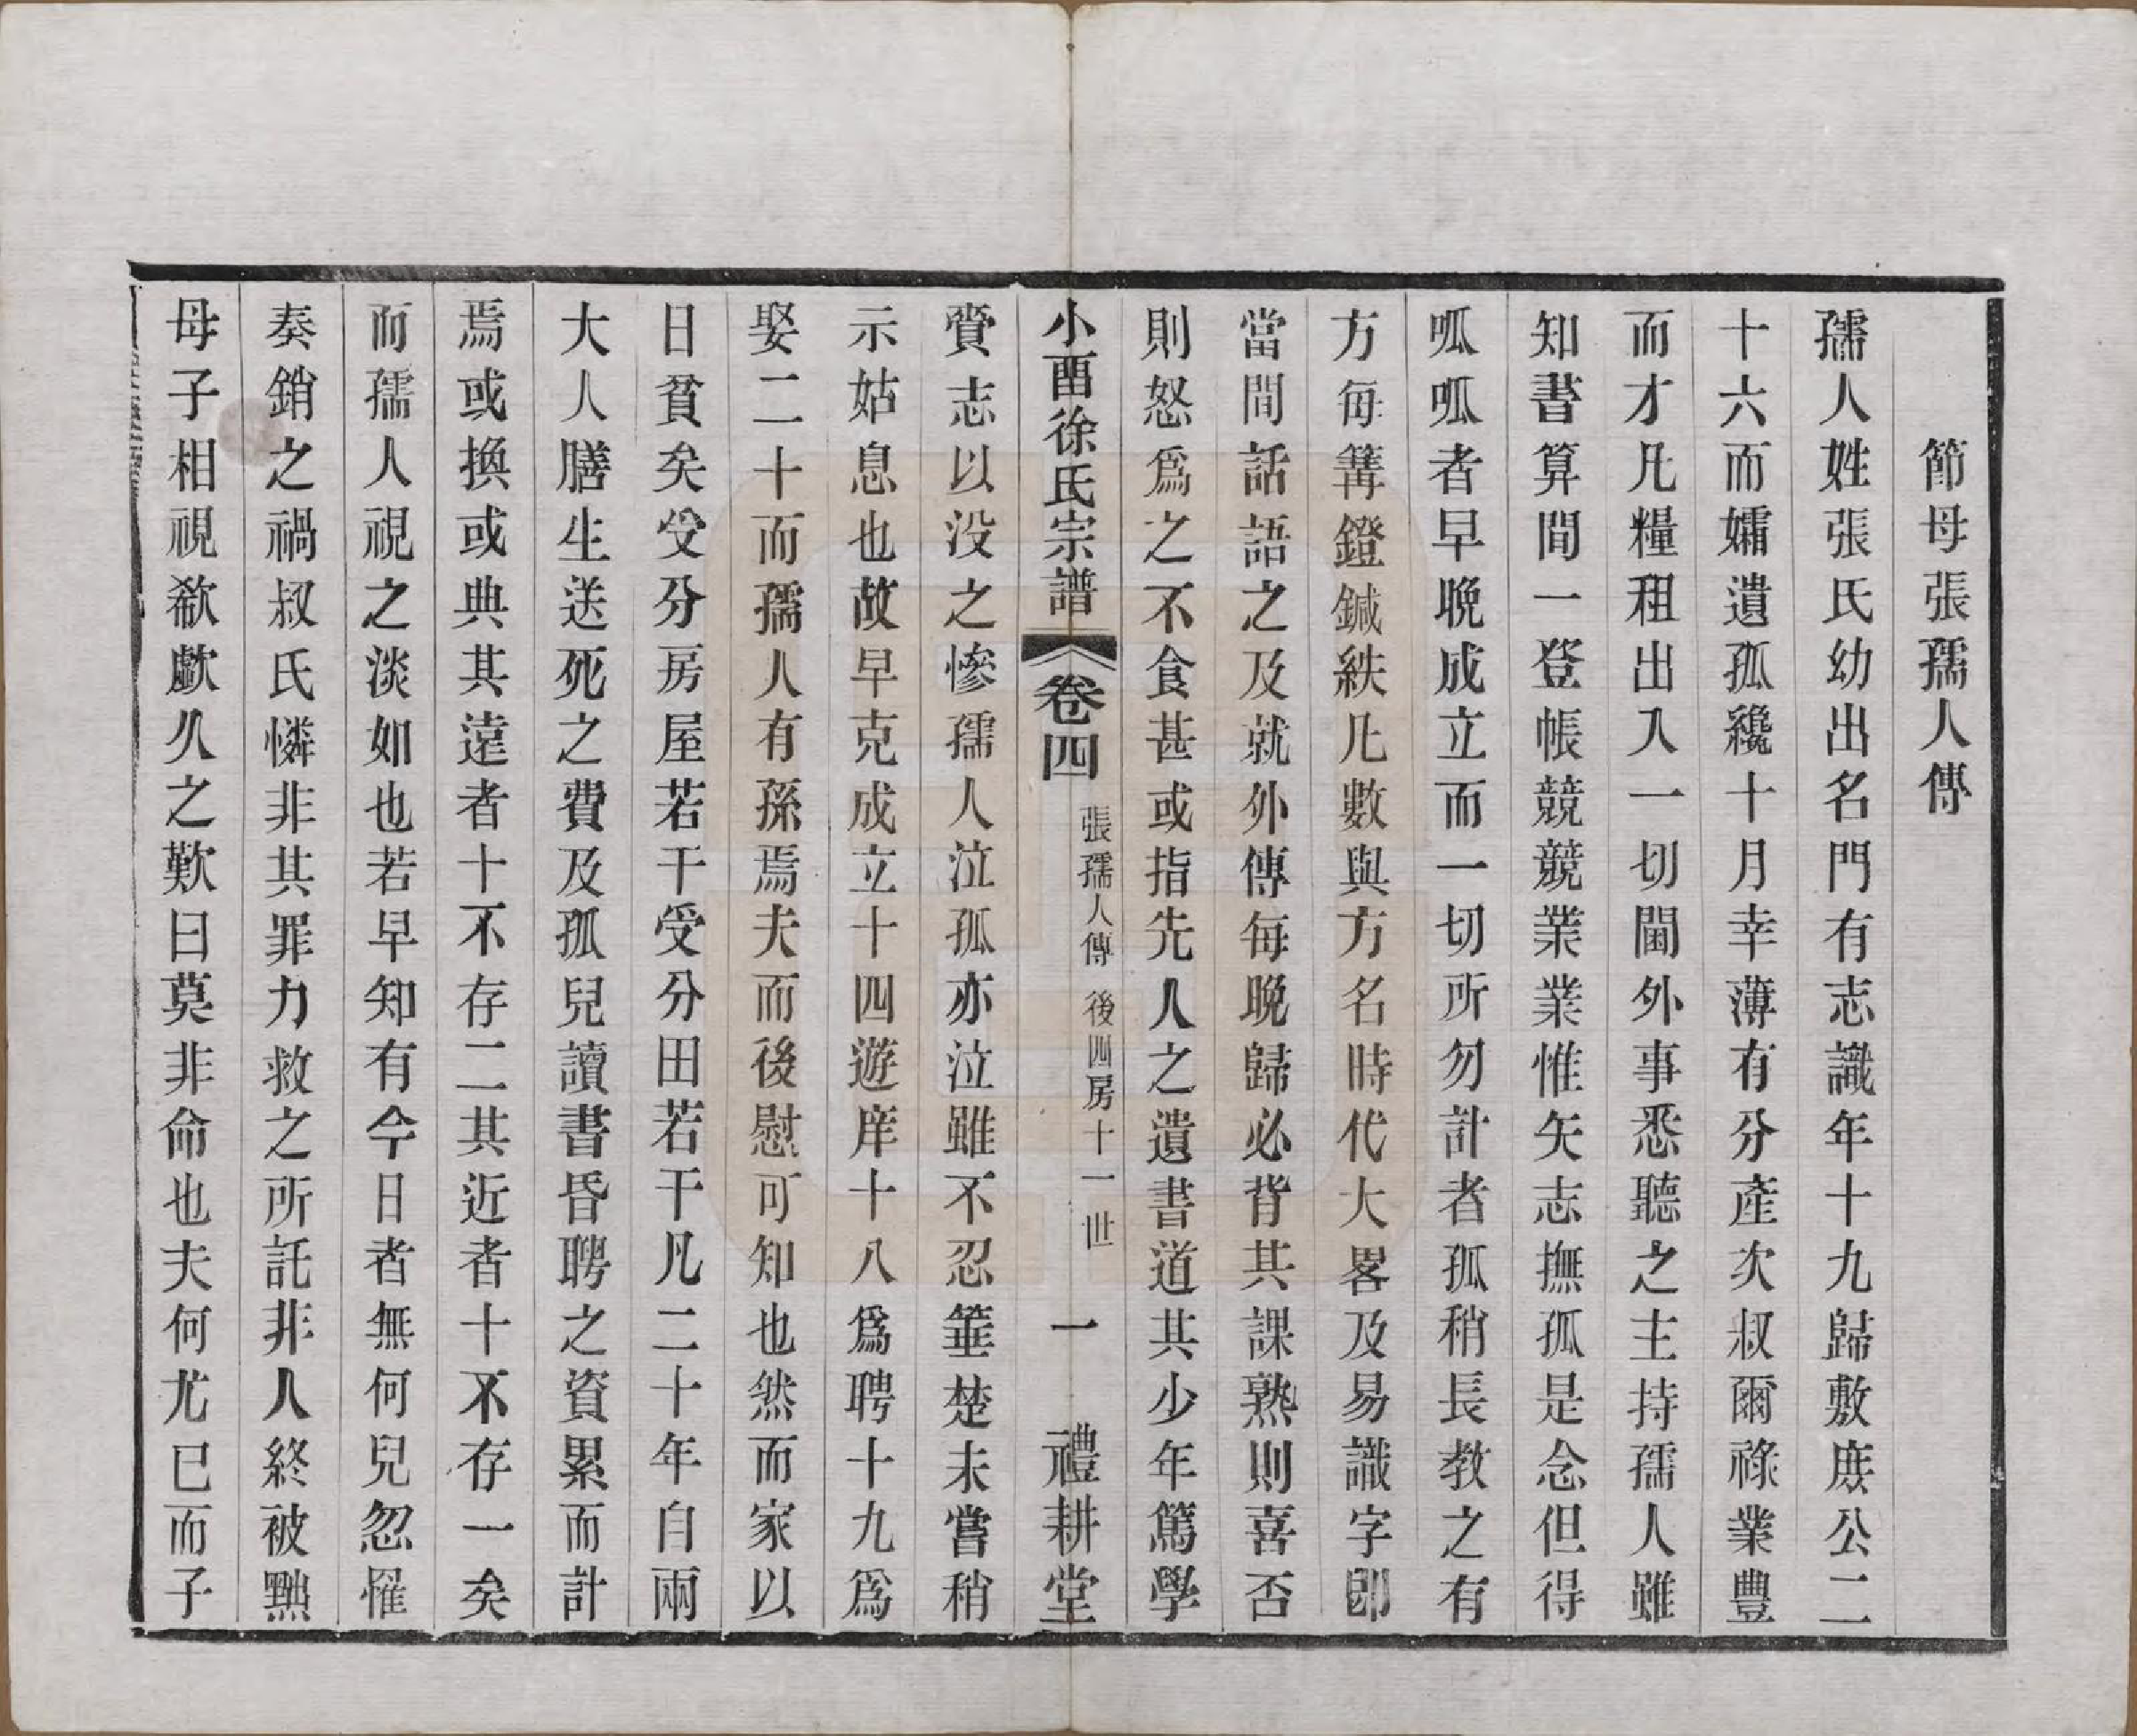 節母張孺人傳
孺人姓張氏幼出名門有志識年十九歸敷庶公二
十六而孀遺孤纔十月幸薄有分產次叔爾祿業豐
而才凡糧租出入一切閫外事悉聽之主持孺人雖
知書算間一登帳競競業業惟矢志撫孤是念但得
呱呱者早晚成立而一切所勿計者孤稍長教之有
方每篝鐙鍼紩凡數與方名時代大畧及易識字卽
當間話語之及就外傅每晚歸必背其課熟則喜否
則怒爲之不食甚或指先人之遺書道其少年篤學
小酉徐氏宗譜 卷四 張孺人傳 後四房十一世 一 禮耕堂
賫志以没之慘孺人泣孤亦泣雖不忍箠楚未嘗稍
示姑息也故早克成立十四遊庠十八爲聘十九爲
娶二十而孺人有孫焉夫而後慰可知也然而家以
日貧矣父分房屋若干受分田若干凡二十年自兩
大人膳生送死之費及孤兒讀書昏聘之資累而計
焉或換或典其遠者十不存二其近者十不存一矣
而孺人視之淡如也若早知有今日者無何兒忽罹
奏銷之禍叔氏憐非其罪力救之所託非人終被黜
母子相視欷歔久之歎曰莫非命也夫何尤已而子